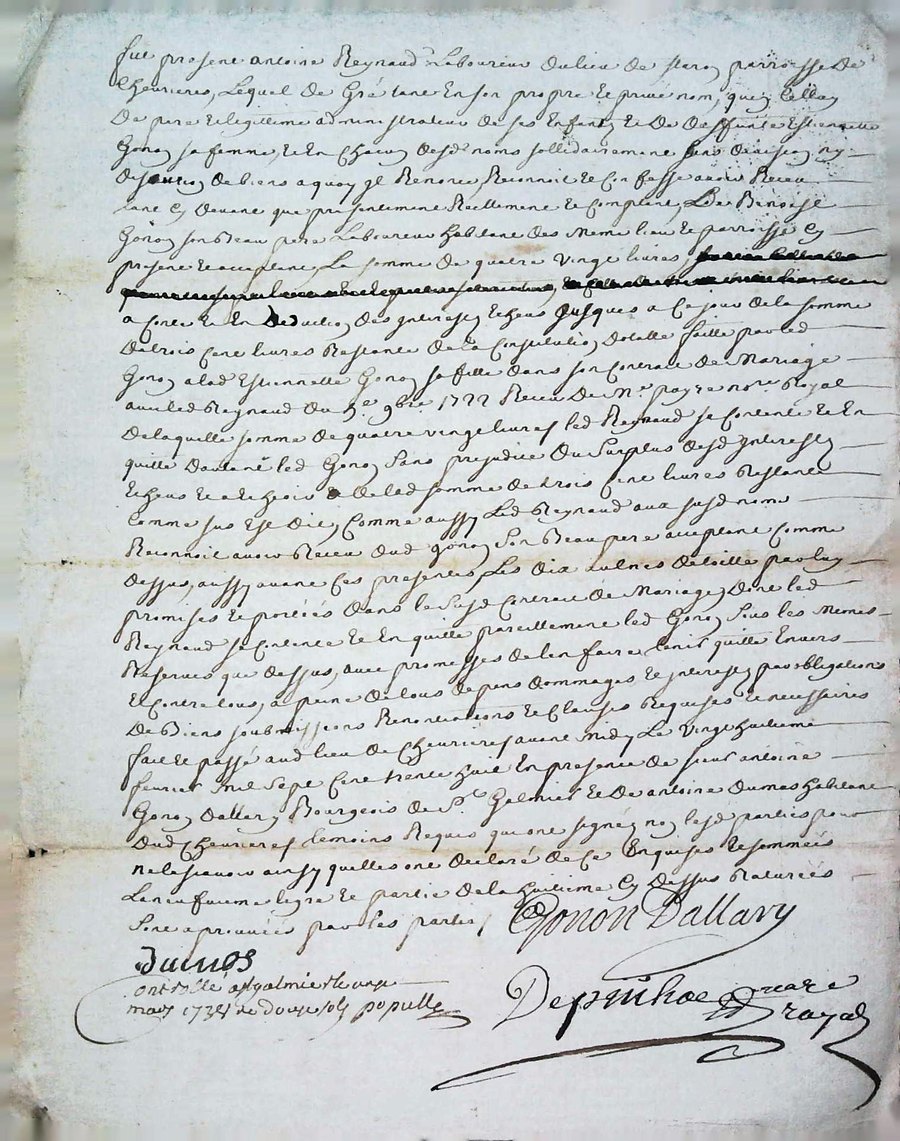 fut present antoine Reynaud Laboureur du lieu de parroisse de
Chevrieres, Lequel de Gré tant En son propre Et privé nom, que Celluy
De pere Et legittime administrateur de ses Enfants Et De deffunte Estiennette
Gonon sa femme, Et En Chacun desd noms sollidairement sans division ny
de biens a quoy jl Renonce, Reconnoit Et Confesse avoir Receu
tant Cy devant que presentement Reellement Et Comptant, De Benoist
Gonon son Beau pere Laboureur habitant des Meme lieu Et parroisse Cy
present Et acceptant, La somme de quatre vingt livres,
a Conte Et En Deduction des jnterests Echeus jusques a Ce jour de la somme
de trois Cent livres Restante de la Constitution dotalle faitte par led
Gonon a lad Estiennette Gonon sa fille dans son Contrat de Mariage
avec led Reynaud du 9bre 1722 Receu De Me. payre nore Royal
de laquelle somme de quatre vingt livres led Reynaud se Contente Et En
quitte dautant led Gonon Sans prejudice Du Surplus desd jnterests
Echeus Et a Echeoir Et de lad somme de trois Cent livres Restante
Comme sus Est dit, Comme aussy Led Reynaud aux susd noms
Reconnoit avoir Receu dud Gonon Son Beau pere acceptant Comme
dessus, aussy avant Ces presentes, Les dix aulnes de toille par luy
promises Et portées dans le Susd Contrat de Mariage, dont led
Reynaud se Contente Et En quitte pareillement led Gonon Sous les Memes
Reserves que dessus, avec promesses de len faire tenir quitte Envers
Et Contre tous, a peine de tous depens dommages Et jnterests par obligations
De Biens soubmissions Renonciations Et Clauses Requises Et necessaires
fait Et passé aud lieu de Chevrieres avant Midy Le Vingt huitieme
fevrier Mil Sept Cent trente huit En presence de sieur antoine
Gonon Dallary Bourgeois de St. Galmier Et De antoine dumas habitant
Dud Chevrieres temoins Requis qui ont signé, non lesd parties pour
ne le scavoir ainsy quelles ont declaré de Ce Enquises Et sommées
La neufvieme ligne Et partie de la huitieme Cy dessus Raturées
Sont aprouvées par les parties
Gonon Dallary
Dumas
a st galmier le
mars 1738 Re douze sols populle
notaire
royal